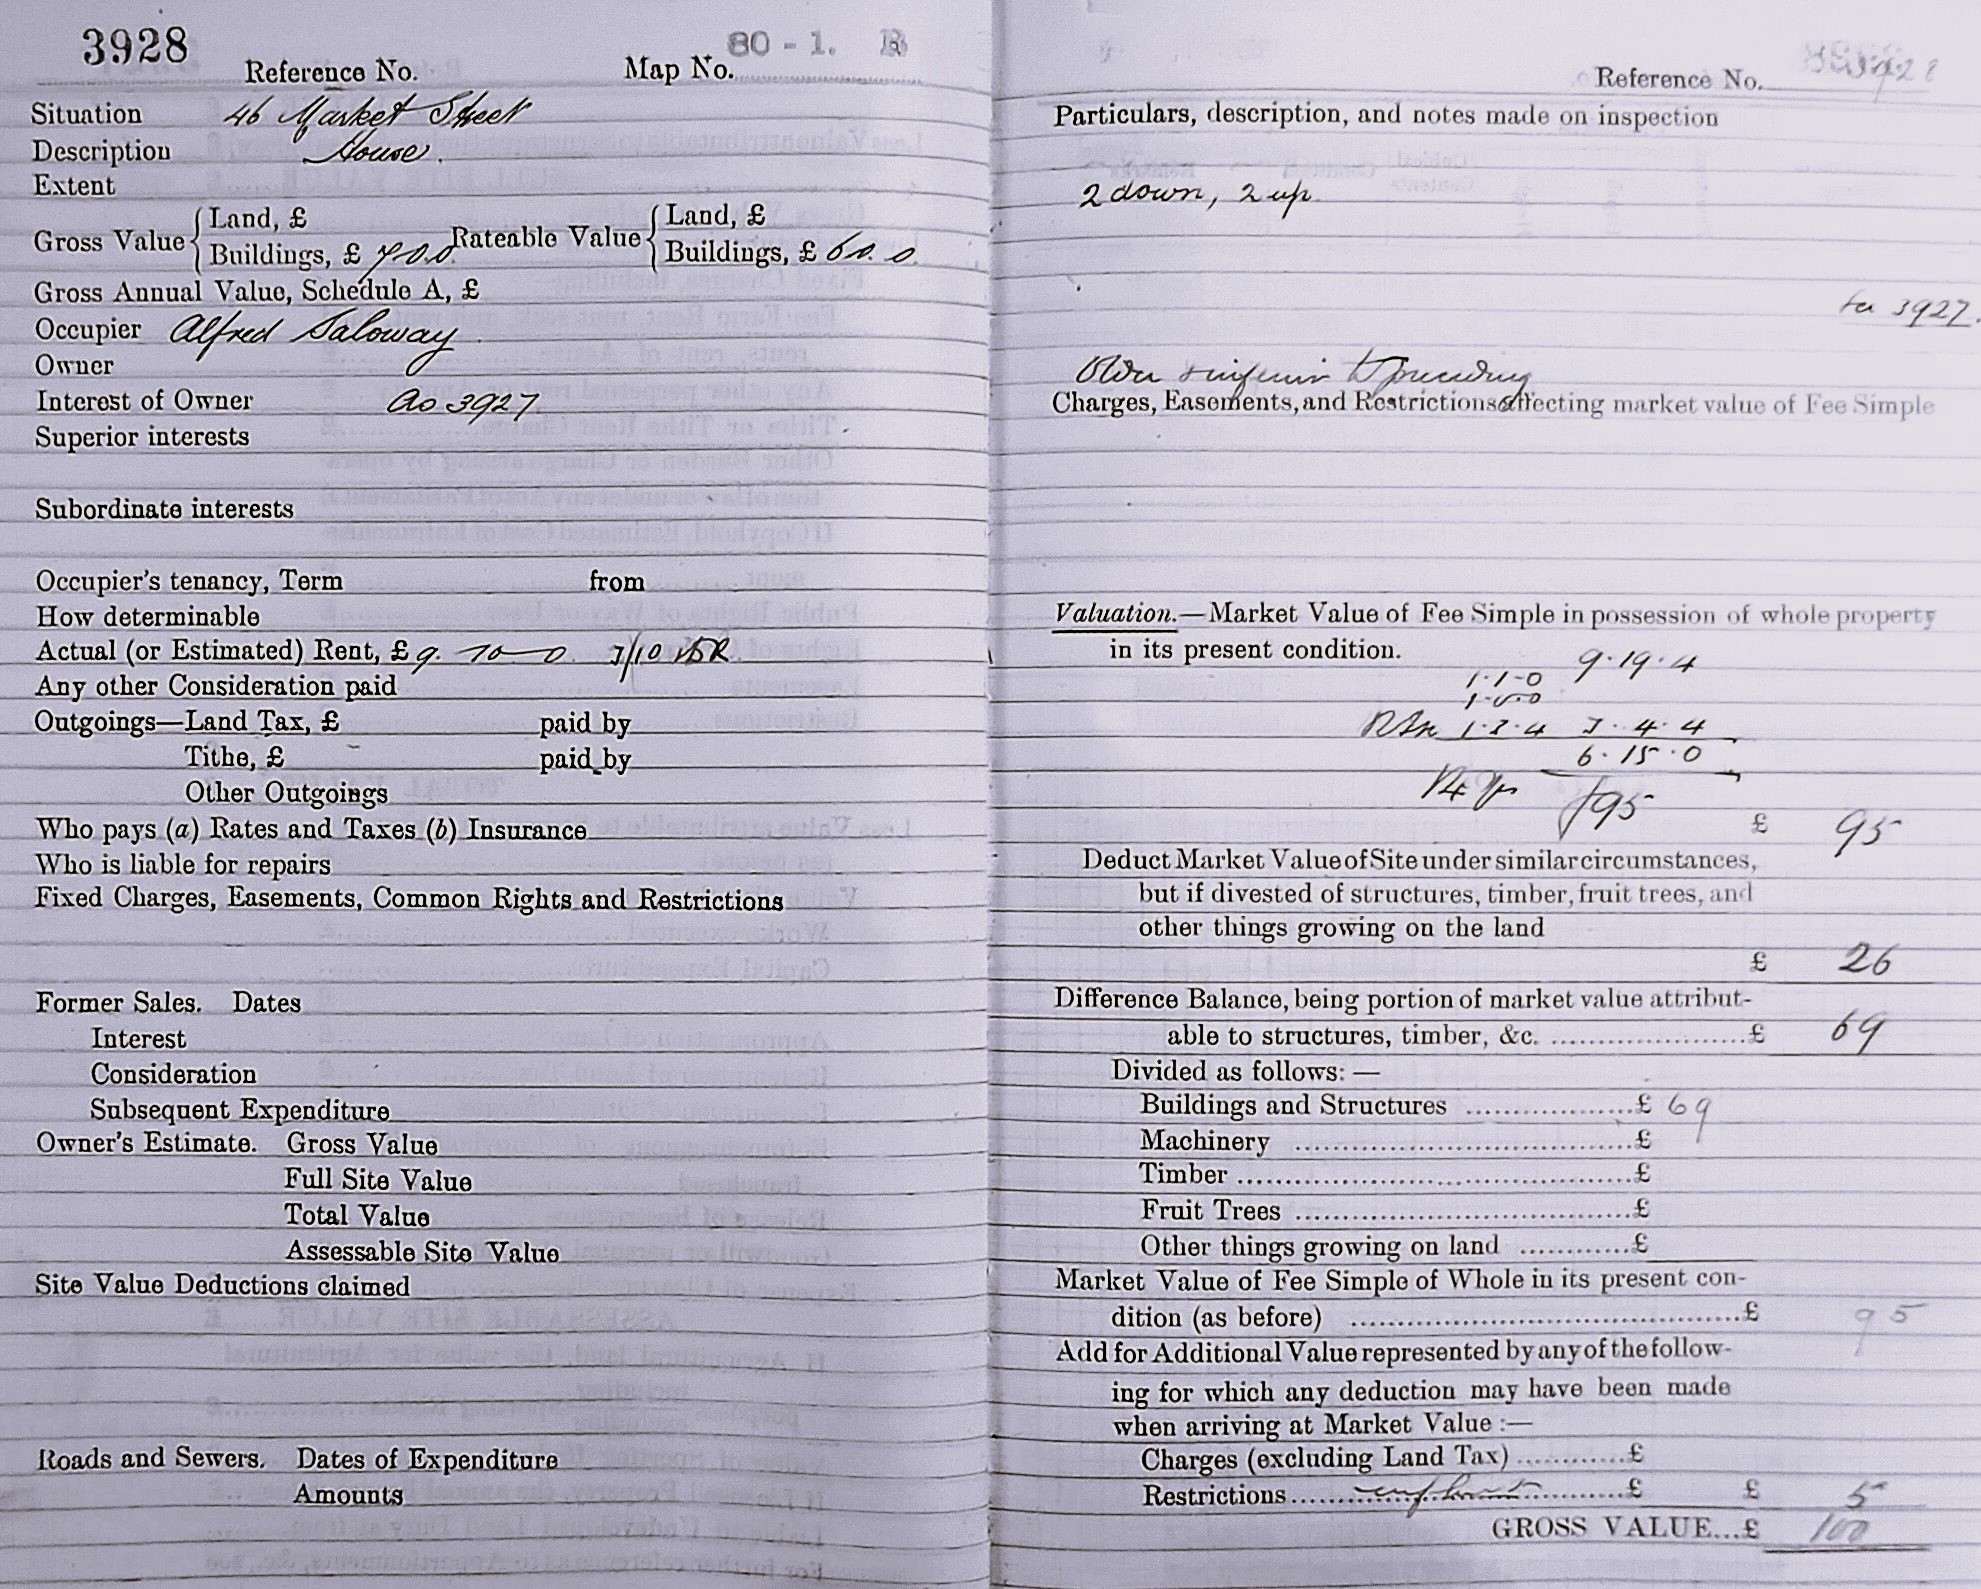 3928
Reference No. Map No. 80 - 1. B
Situation 46 Market Street
Description House.
Extent
Gross Value { Land, £ Rateable Value { Land, £
Buildings, £ 7.0.0. Buildings, £ 6.0.0
Gross Annual Value, Schedule A, £
Occupier Alfred Saloway.
Owner
Interest of Owner as 3927
Superior interests
Subordinate interests
Occupier's tenancy, Term from
How determinable
Actual (or Estimated) Rent, £ 9. 10 - 0. 3/10
Any other Consideration paid
Outgoings—Land Tax, £ paid by
Tithe, £ paid by
Other Outgoings
Who pays (a) Rates and Taxes (b) Insurance
Who is liable for repairs
Fixed Charges, Easements, Common Rights and Restrictions
Former Sales. Dates
Interest
Consideration
Subsequent Expenditure
Owner's Estimate. Gross Value
Full Site Value
Total Value
Assessable Site Value
Site Value Deductions claimed
Roads and Sewers. Dates of Expenditure
Amounts
Reference No. 3928
Particulars, description, and notes made on inspection
2 down, 2 up.
3927.
Older & inferior to preceding
Charges, Easements, and Restrictions affecting market value of Fee Simple
Valuation.—Market Value of Fee Simple in possession of whole property
in its present condition.
9.19.4
1.1-0
1-0.0
1.3.4 3.4.4
6.15.0
14 yp £95
£ 95
Deduct Market Value of Site under similar circumstances,
but if divested of structures, timber, fruit trees, and
other things growing on the land
£ 26
Difference Balance, being portion of market value attribut-
able to structures, timber, &c. ....................£ 69
Divided as follows: —
Buildings and Structures ..................£ 69
Machinery ....................................£
Timber ............................................£
Fruit Trees ......................................£
Other things growing on land ............£
Market Value of Fee Simple of Whole in its present con-
dition (as before) ..........................................£ 95
Add for Additional Value represented by any of the follow-
ing for which any deduction may have been made
when arriving at Market Value :—
Charges (excluding Land Tax) ............£
Restrictions ....................................£ £ 5
GROSS VALUE...£ 100